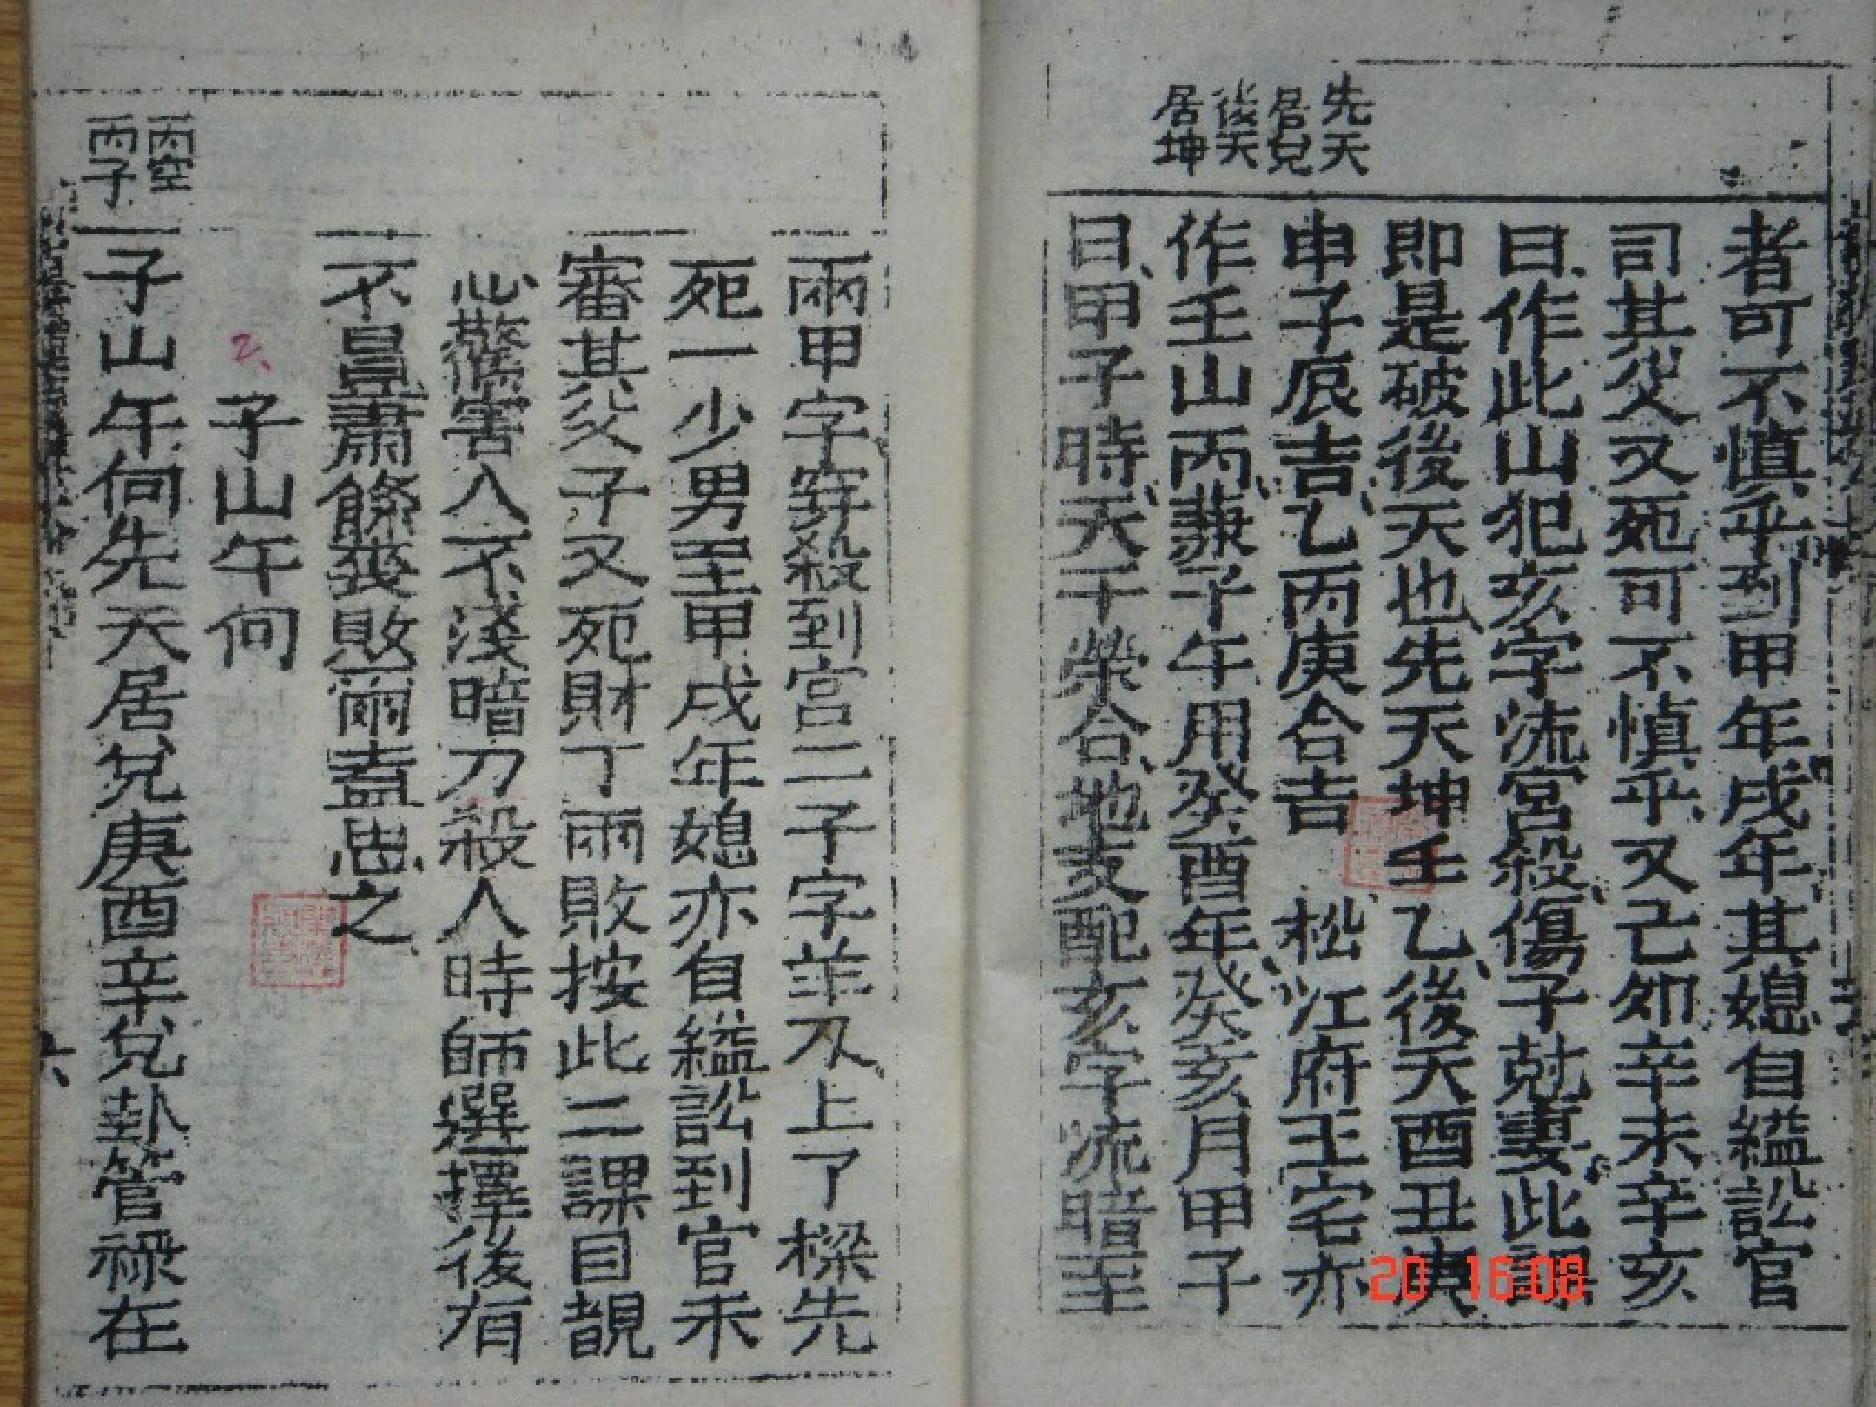 先天
居兌
後天
居坤
者可不慎乎到甲年戌年其媳自縊訟官
司其父又死可不慎乎又己卯辛未辛亥
日作此山犯亥字流宮殺傷子尅妻此課
即是破後天也先天坤壬乙後天酉丑庚
申子辰吉乙丙庚合吉 松江府王宅亦
作壬山丙兼子午用癸酉年癸亥月甲子
日甲子時天干榮合地支配亥字流暗至
兩甲字穿殺到宮二子字羊刃上了樑先
死一少男至甲戌年媳亦自縊訟到官未
審其父子又死財丁兩敗按此二課目覩
心驚害人不淺暗刀殺人時師選擇後有
不昌肅條喪敗爾盍思之
子山午向
2、
丙空
丙子
子山午向先天居兌庚酉辛兌卦管祿在
六
20 16:08